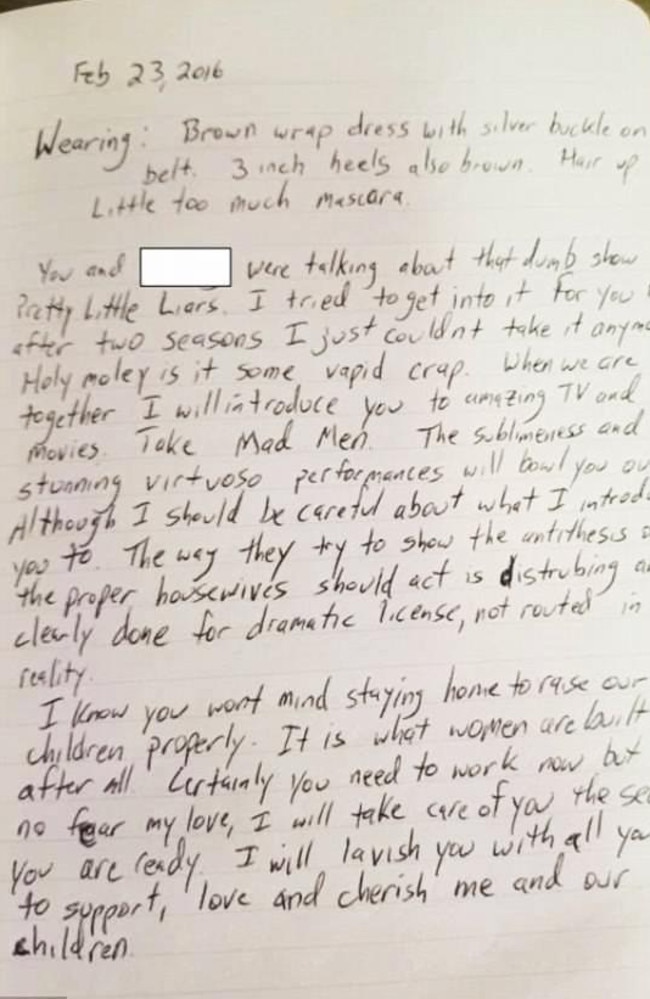 Feb 23, 2016
Wearing: Brown wrap dress with silver buckle on
belt. 3 inch heels also brown. Hair up
Little too much mascara.
You and were talking about that dumb show
Pretty Little Liars. I tried to get into it for you
after two seasons I just couldnt take it anymo
Holy moley is it some vapid crap. When we are
together I will introduce you to amazing TV and
movies. Take Mad Men. The sublimeness and
stunning virtuoso performances will bowl you ou
Although I should be careful about what I introd
you to. The way they try to show the antithesis o
the proper housewives should act is distrubing a
clearly done for dramatic license, not routed in
reality.
I know you wont mind staying home to raise our
children properly. It is what women are built
after all. Certainly you need to work now but
no fear my love, I will take care of you the se
you are ready. I will lavish you with all yo
to support, love and cherish me and our
children.